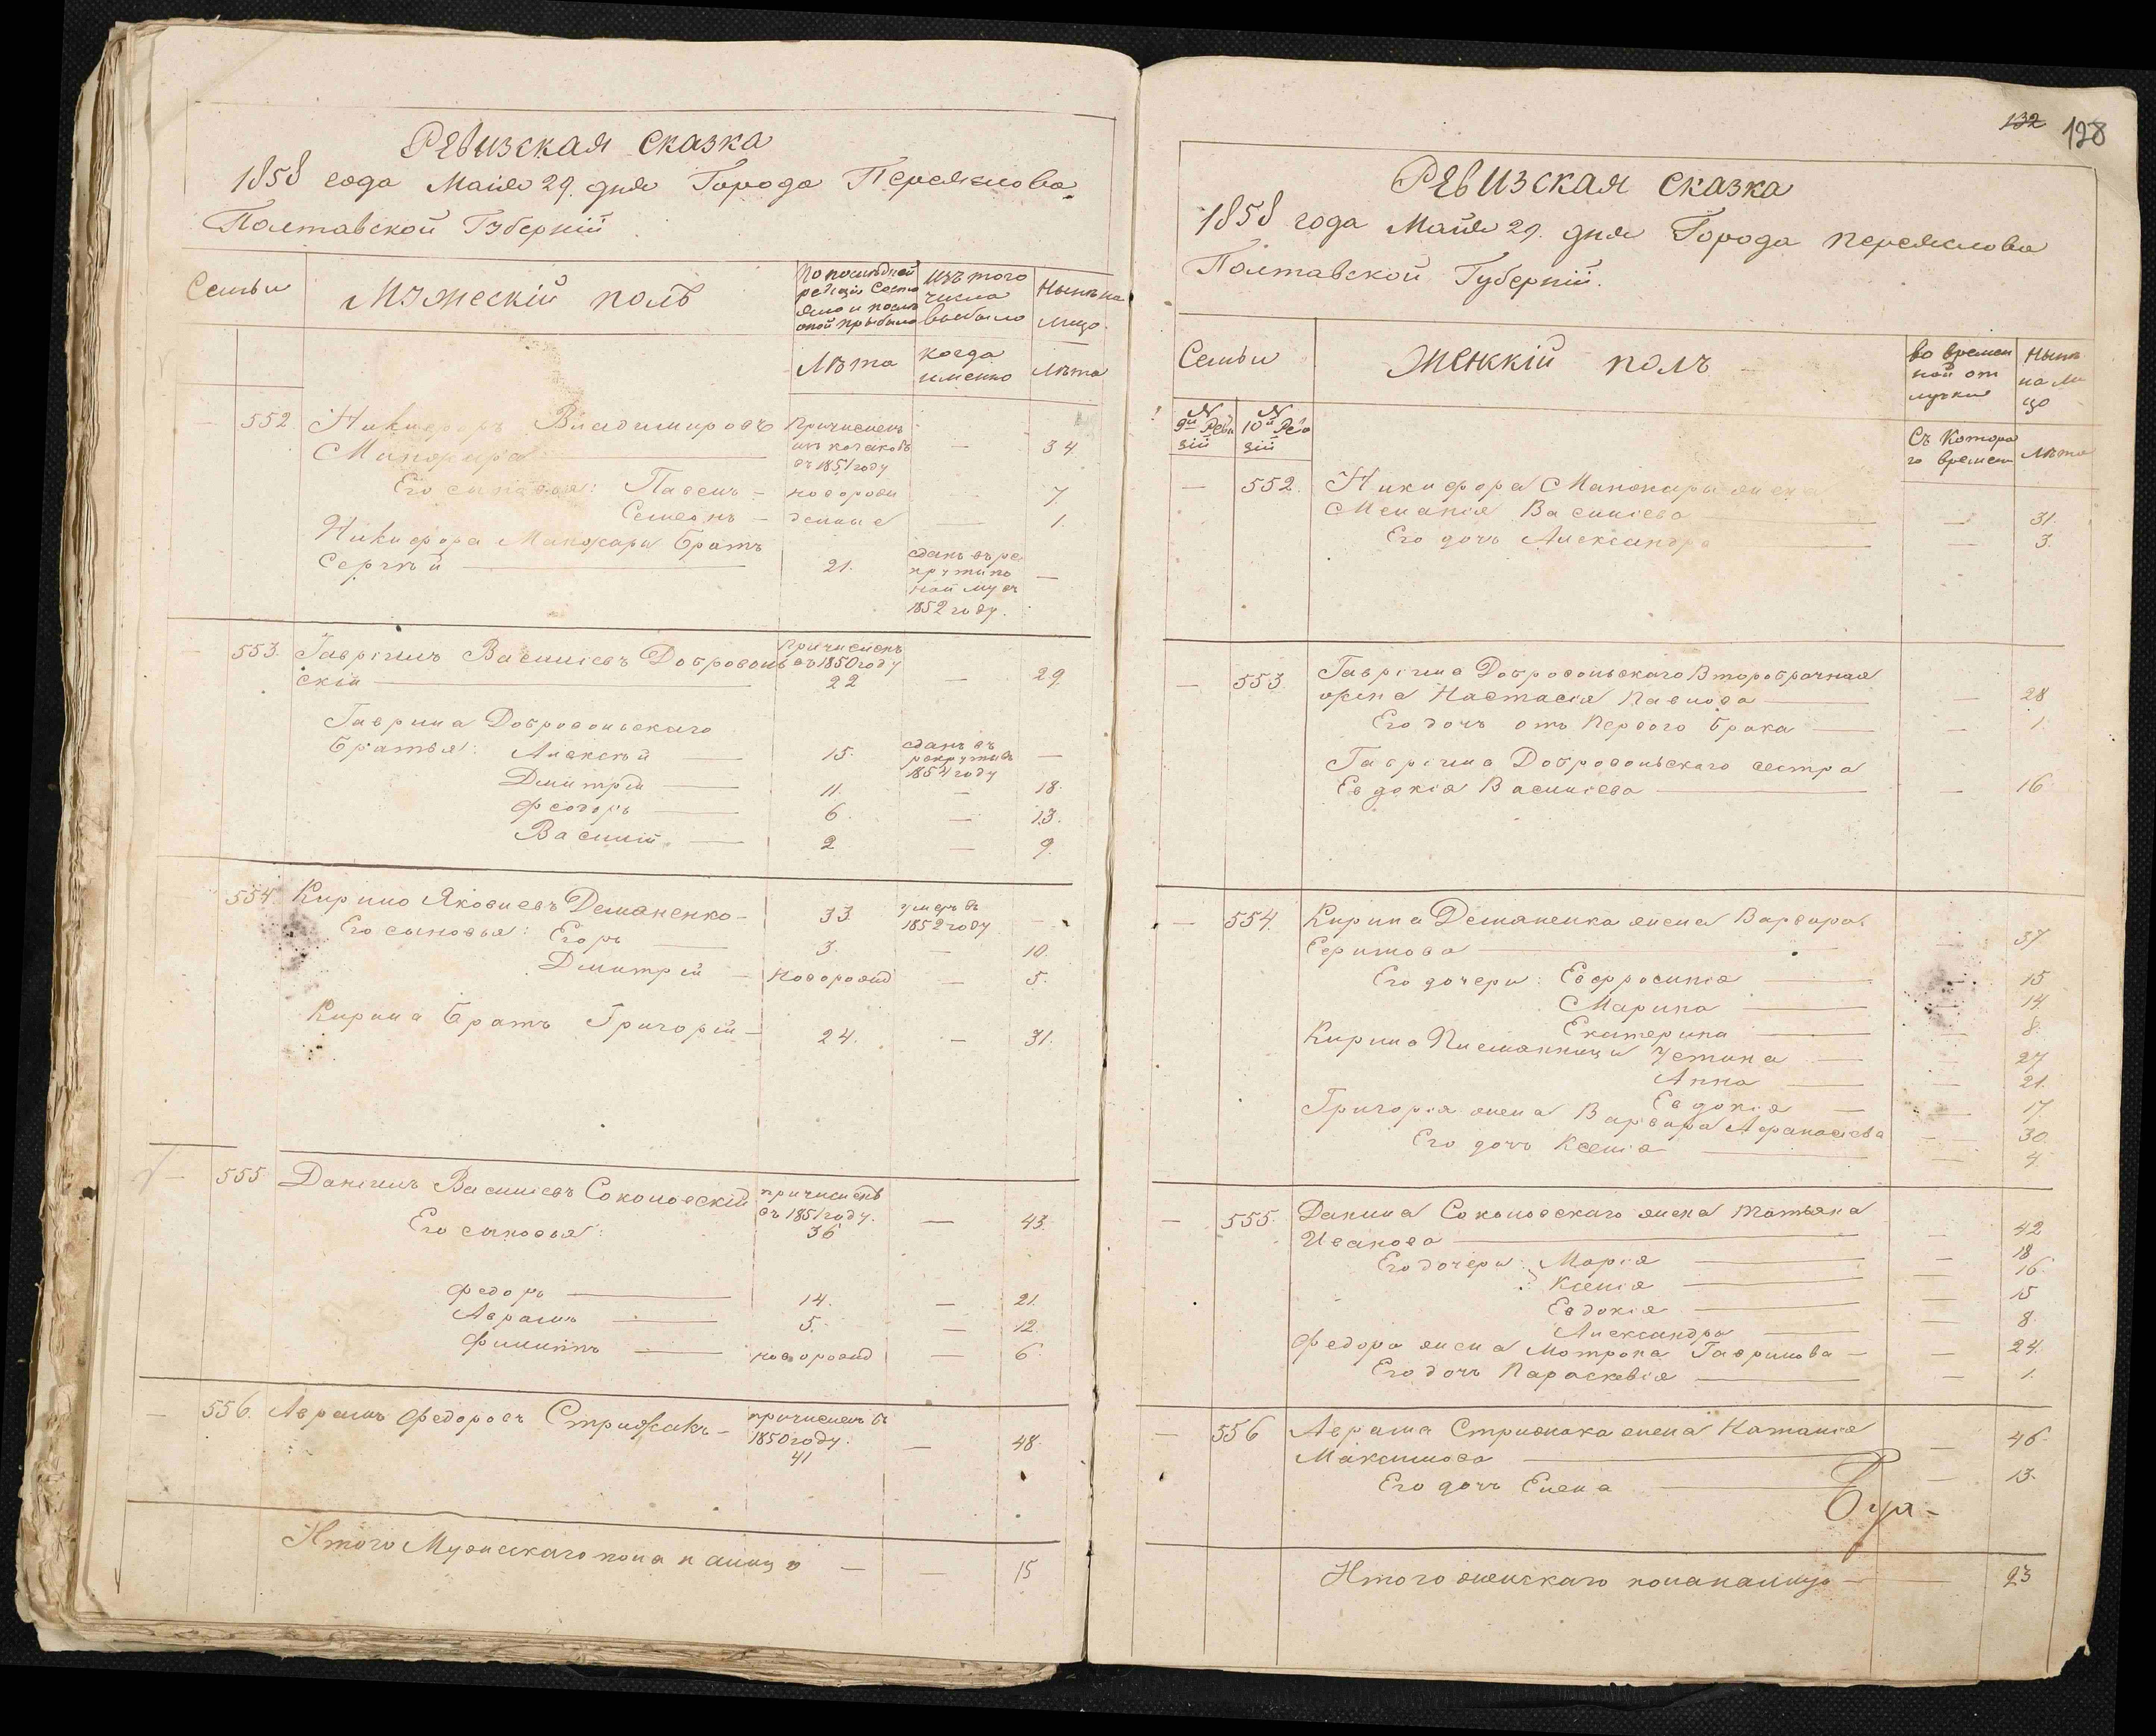 Ревизская сказка
1858 года Майя 29. дня Города Переяслова
Полтавской Губерніи
Семьи
Мужескій полъ
По последней
ревизіи состо
яло и после
оной прибыло
Изъ того
числа
выбыло
Ныне на
лицо
Лѣта
когда
именно
Лѣта
552 Никифоръ Владимировъ Причисленъ
Манжара изъ козаковъ — 34
въ 1851 году
Его сыновья: Павелъ — новорож — 7.
Семенъ — денные — 1.
Никифора Манжари братъ
Сергѣй — 21. сданъ въ ре
крути по —
ной му въ
1852 году.
553. Гавріилъ Василіевъ Доброволь причисленъ въ 1850 году
скій — 22 — 29
Гаврила Добровольскаго
братья: Алексѣй — 15. сданъ въ рекруты въ 1854 году —
Дмитрій — 11. — 18.
Феодоръ — 6. — 13.
Василій — 2 — 9.
554. Кирило Яковлевъ Деманенко — 33 умеръ въ 1852 году —
Его сыновья: Егоръ — 3. — 10.
Дмитрій — новорожд — 5.
Кирила братъ Григорій — 24. — 31.
555 Даніилъ Василіевъ Соколовскій причисленъ въ 1851 году. 36 — 43.
Его сыновья:
Федоръ — 14. — 21.
Аврамъ — 5. — 12.
Филиппъ — новорожд — 6.
556. Аврамъ Федоровъ Стрижакъ — причисленъ въ 1850 году. 41 — 48.
Итого Мужескаго пола на лицо — — 15
132 128
Ревизская сказка
1858 года Майя 29. дня Города Переяслова
Полтавской Губерніи.
Семьи
Женккій полъ
во времен
ной от
лучки
Ныне
на ли
цо
№
9й Реви
зіи
№
10й Реви
зіи
Съ Котора
го времени
Лѣта
— 552. Никифора Манжары жена
Меланія Василіева — — 31.
Его дочь Александра — — 3.
— 553 Гавріила Добровольскаго Второбрачная
жена Настасія Павлова — — 28
Его дочь отъ Первого брака — — 1.
Гавріила Добровольскаго сестра
Евдокія Василіева — — 16
— 554. Кирила Деманенка жена Варвара
Ефимова — — 37
Его дочери: Евфросинія — — 15
Марина — — 14
Екатерина — — 8.
Кирила Племянници Устина — — 27
Анна — — 21.
Евдокія — — 17.
Григорія жена Варвара Афанасіева — 30.
Его дочь Ксенія — — 4.
— 555. Данила Соколовскаго жена Татьяна
Иванова — — 42
Его дочери: Марія — — 18
Ксенія — — 16.
Евдокія — — 15
Александра — — 8.
Федора жена Мотрона Гаврилова — — 24.
Его дочь Параскевія — — 1.
— 556 Аврама Стрижака жена Наталія
Максимова — — 46.
Его дочь Елена — — 13.
Итого женскаго пола на лицо — — 23